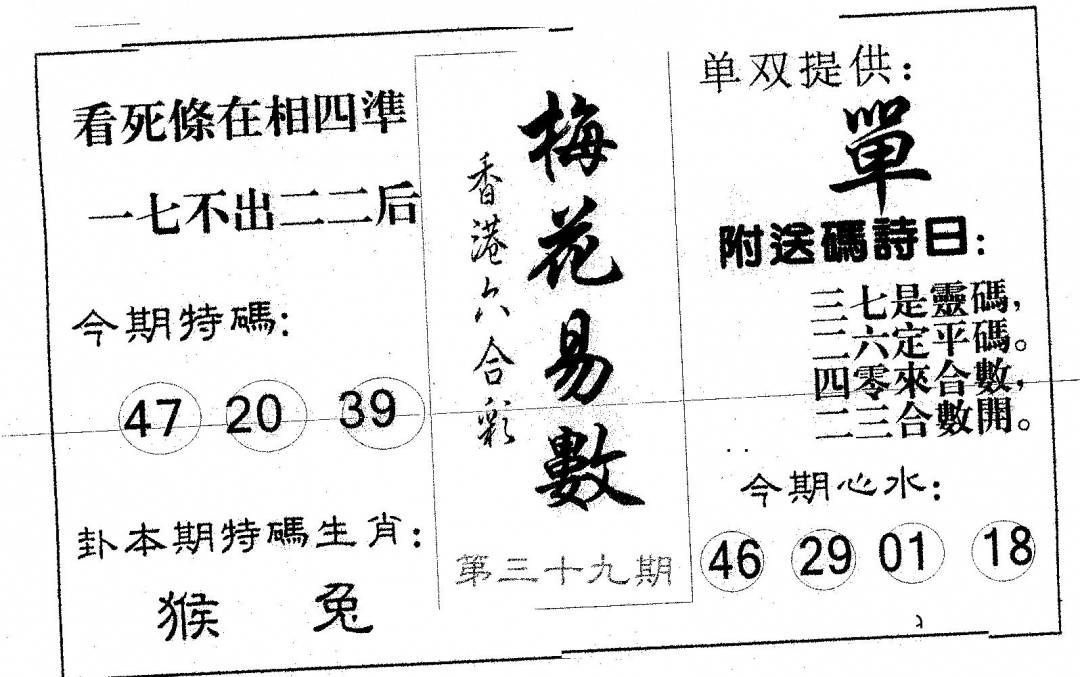 看死條在相四準
一七不出二二后
今期特碼:
47 20 39
卦本期特碼生肖:
猴 兔
香港六合彩
梅花易數
第三十九期
单双提供:
單
附送碼詩曰:
三七是靈碼,
二六定平碼。
四零來合數,
二三合數開。
今期心水:
46 29 01 18